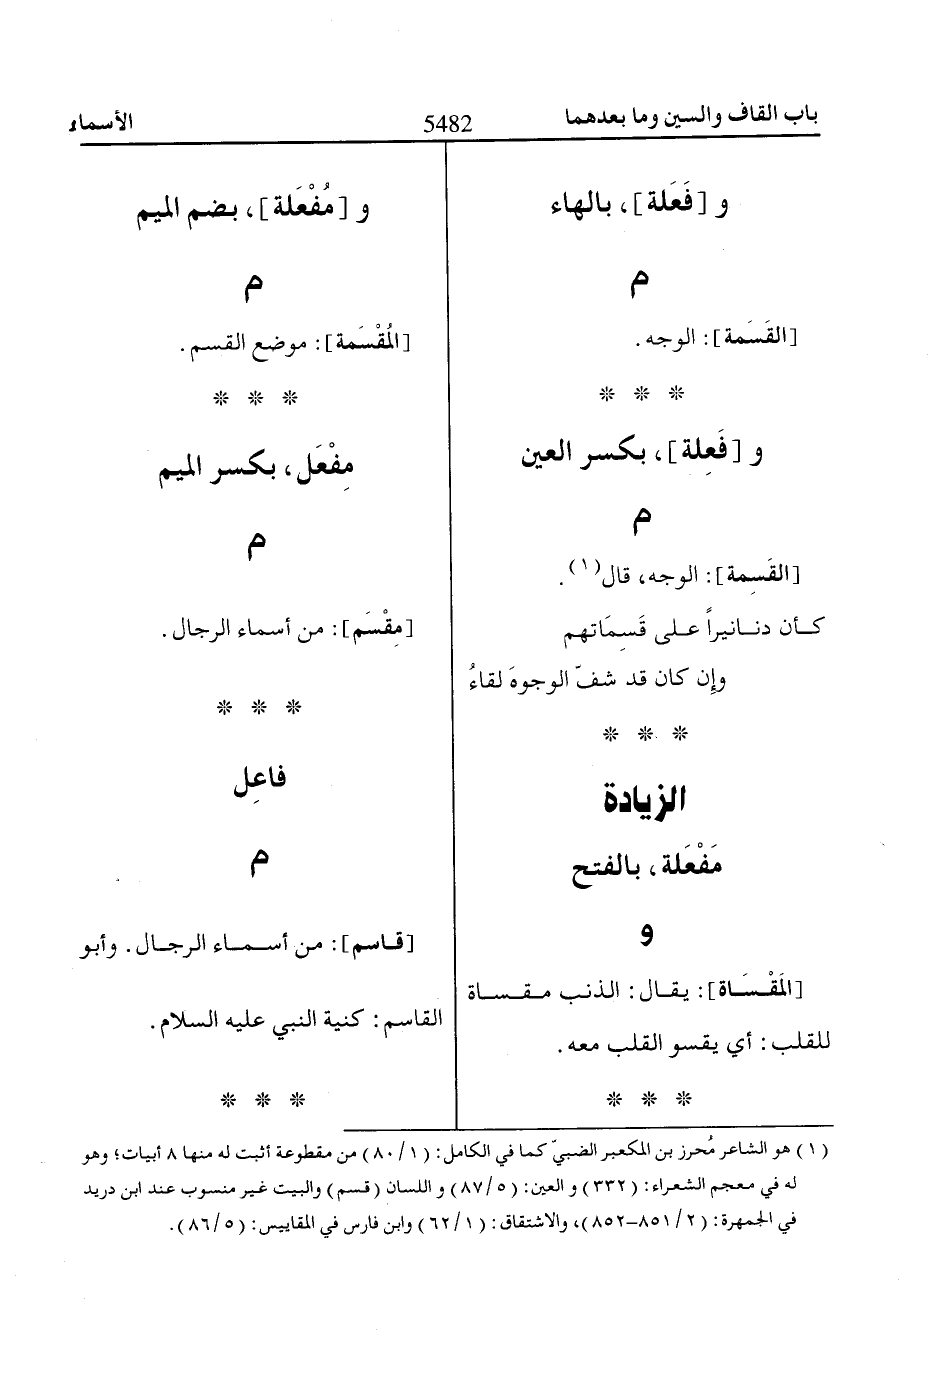 باب القاف والسين وما بعدهما
5482
الأسماء
و [فَعَلة]، بالهاء
م
[القَسَمة]: الوجه.
* * *
و [فَعِلة]، بكسر العين
م
[القَسِمة]: الوجه، قال(١).
كأن دنانيراً على قَسِمَاتهم
وإن كان قد شفّ الوجوهَ لقاءُ
* * *
الزيادة
مَفْعَلة، بالفتح
و
[المَقْسَاة]: يقال: الذنب مقساة
للقلب: أي يقسو القلب معه.
* * *
و [مُفْعَلة]، بضم الميم
م
[المُقْسَمة]: موضع القسم.
* * *
مِفْعَل، بكسر الميم
م
[مِقْسَم]: من أسماء الرجال.
* * *
فاعِل
م
[قاسم]: من أسماء الرجال. وأبو
القاسم: كنية النبي عليه السلام.
* * *
(١) هو الشاعر مُحرز بن المكعبر الضبيّ كما في الكامل: (٨٠/١) من مقطوعة أثبت له منها ٨ أبيات؛ وهو
له في معجم الشعراء: (٣٣٢) و العين: (٨٧/٥) و اللسان (قسم) والبيت غير منسوب عند ابن دريد
في الجمهرة: (٨٥١/٢–٨٥٢)، والاشتقاق: (٦٢/١) وابن فارس في المقاييس: (٨٦/٥).